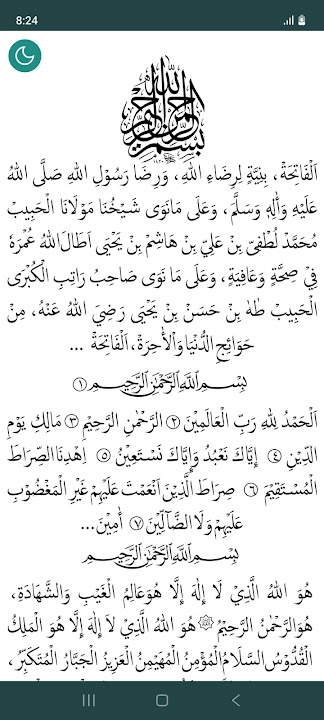 8:24
بِسْمِ اللهِ الرَّحْمٰنِ الرَّحِيْمِ
اَلْفَاتِحَةْ، بِنِيَّةٍ لِرِضَاءِ اللهِ، وَرِضَا رَسُوْلِ اللهِ صَلَّى اللهُ
عَلَيْهِ وَاٰلِهٖ وَسَلَّمَ، وَعَلَى مَانَوَى شَيْخُنَا مَوْلَانَا الْحَبِيبْ
مُحَمَّدْ لُطْفِيْ بِنْ عَلِيْ بِنْ هَاشِمْ بِنْ يَحْيَى اَطَالَ اللهُ عُمْرَهُ
فِيْ صِحَّةٍ وَعَافِيَةٍ، وَعَلَى مَا نَوَى صَاحِبُ رَاتِبِ الْكُبْرَى
الْحَبِيْبْ طٰهٰ بِنْ حَسَنْ بِنْ يَحْيَى رَضِيَ اللهُ عَنْهُ، مِنْ
حَوَائِجِ الدُّنْيَا وَالْاٰخِرَةْ، اَلْفَاتِحَةْ ...
بِسْمِ اللهِ الرَّحْمٰنِ الرَّحِيْمِ ١
اَلْحَمْدُ لِلهِ رَبِّ الْعَالَمِيْنَ ٢ الرَّحْمٰنِ الرَّحِيْمِ ٣ مَالِكِ يَوْمِ
الدِّيْنِ ٤ إِيَّاكَ نَعْبُدُ وَإِيَّاكَ نَسْتَعِيْنُ ٥ اِهْدِنَا الصِّرَاطَ
الْمُسْتَقِيْمَ ٦ صِرَاطَ الَّذِيْنَ اَنْعَمْتَ عَلَيْهِمْ غَيْرِ الْمَغْضُوْبِ
عَلَيْهِمْ وَلَا الضَّالِّيْنَ ٧ أَمِيْنَ...
بِسْمِ اللهِ الرَّحْمٰنِ الرَّحِيْمِ
هُوَ اللهُ الَّذِيْ لَا إِلٰهَ إِلَّا هُوَ عَالِمُ الْغَيْبِ وَالشَّهَادَةِ،
هُوَ الرَّحْمٰنُ الرَّحِيْمُ هُوَ اللهُ الَّذِيْ لَا إِلٰهَ إِلَّا هُوَ الْمَلِكُ
الْقُدُّوْسُ السَّلَامُ الْمُؤْمِنُ الْمُهَيْمِنُ الْعَزِيْزُ الْجَبَّارُ الْمُتَكَبِّرُ،